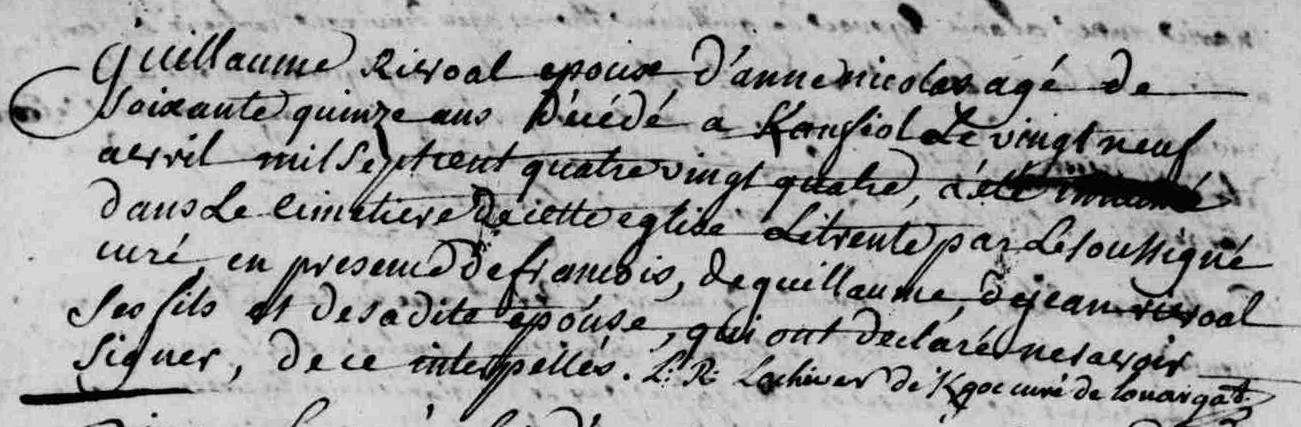 Guillaume Rivoal epoux d'anne nicolas agé de
soixante quinze ans Décédé a Le vingt neuf
avril mil Sept cent quatre vingt quatre, a été inhumé
dans Le Cimetiere de cette eglise Le trente par Le soussigné
curé, en presence de francois, de guillaume, de jean rivoal
ses fils et de sadite epouse, qui ont declaré ne savoir
signer, de ce interpellés. L: R: Lachiver de Kgoz curé de Louargat